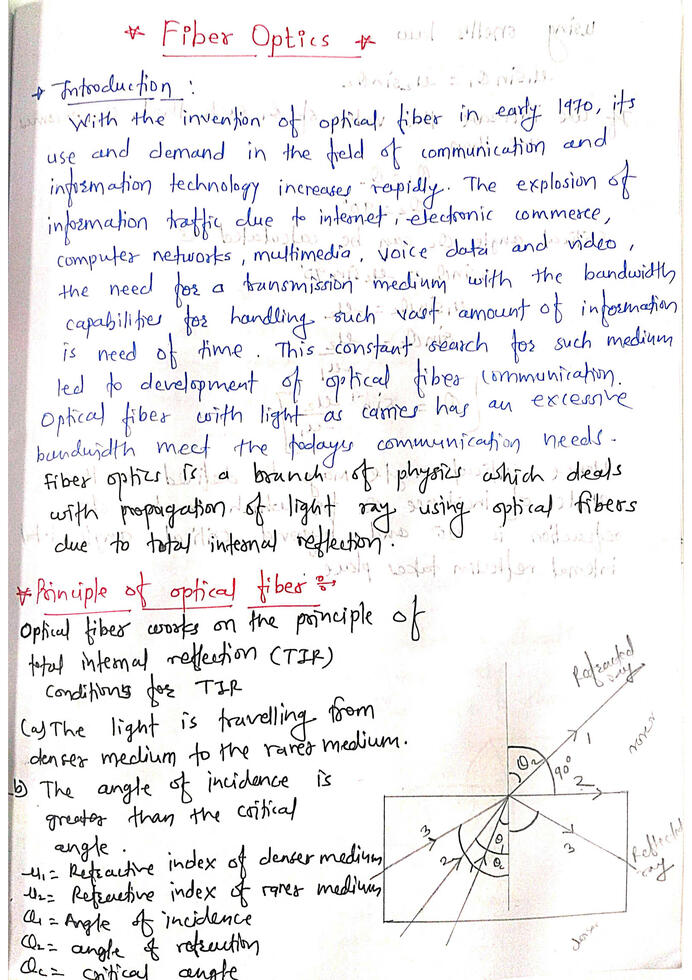 * Fiber Optics *
→ Introduction :
With the invention of optical fiber in early 1970, its
use and demand in the field of communication and
information technology increases rapidly. The explosion of
information traffic due to internet, electronic commerce,
computer networks, multimedia, voice data and video,
the need for a transmission medium with the bandwidth
capabilities for handling such vast amount of information
is need of time. This constant search for such medium
led to development of optical fiber communication.
Optical fiber with light as carries has an excessive
bandwidth meet the todays communication needs.
fiber optics is a branch of physics which deals
with propagation of light ray using optical fibers
due to total internal reflection.
* Principle of optical fiber :-
Optical fiber works on the principle of
total internal reflection (TIR)
Conditions for TIR
(a) The light is travelling from
denser medium to the rarer medium.
b) The angle of incidence is
greater than the critical
angle.
μ1 = Refractive index of denser medium
μ2 = Refractive index of rarer medium
θ1 = Angle of incidence
θ2 = angle of refraction
θc = critical angle
Refracted
ray
1
rarer
θ2
90°
2
3
2
1
θ1
θc
3
Reflected
ray
denser